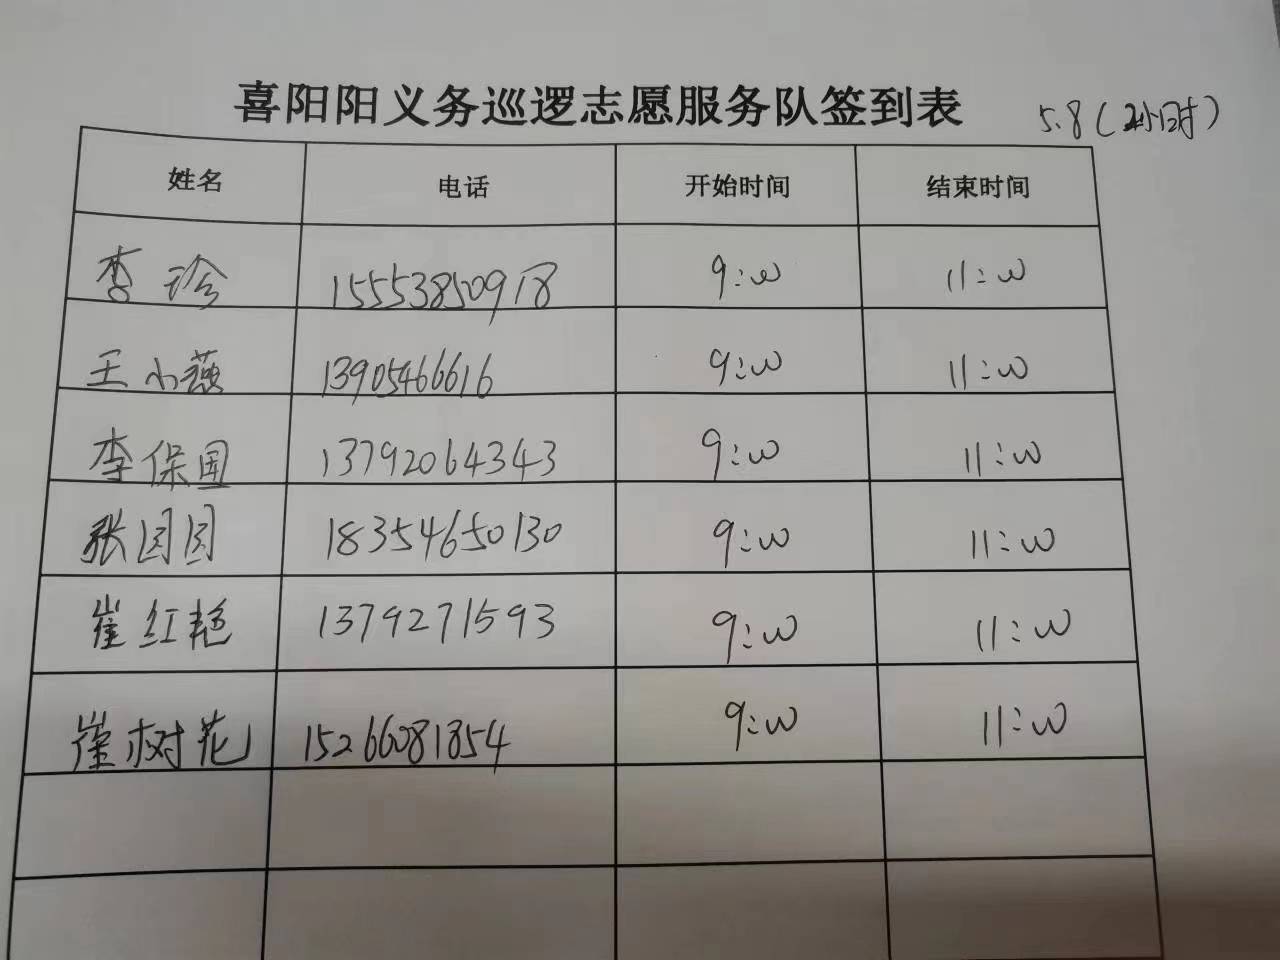 喜阳阳义务巡逻志愿服务队签到表 5.8(2小时)
姓名 电话 开始时间 结束时间
李珍 15553850918 9:00 11:00
王小薇 13905466616 9:00 11:00
李保国 13792064343 9:00 11:00
张园园 18354650130 9:00 11:00
崔红艳 1379271593 9:00 11:00
崔树花 15266081854 9:00 11:00